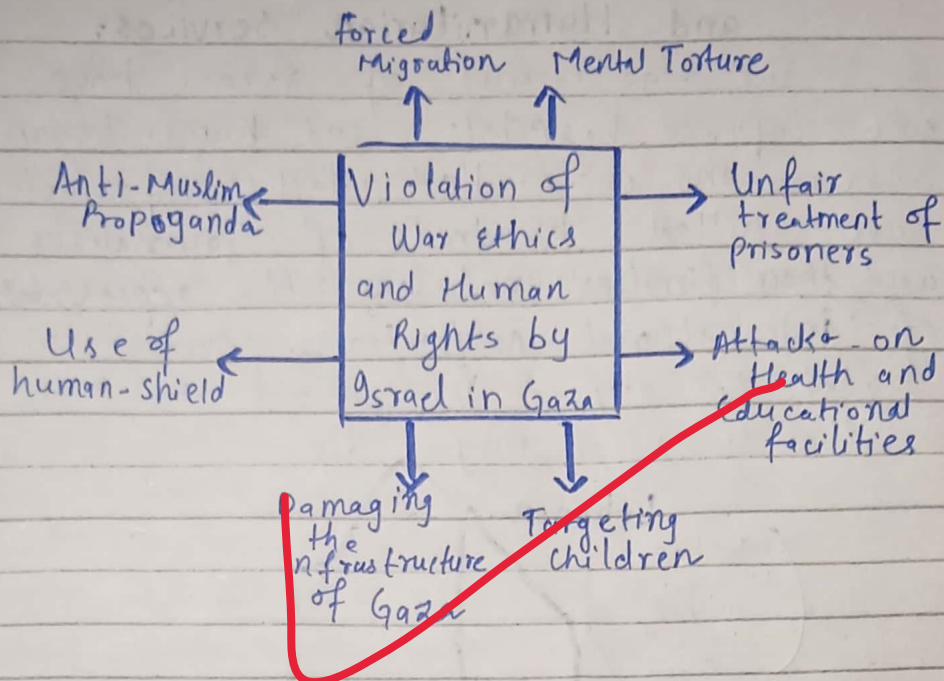 forced
Migration
Mental Torture
Anti-Muslim
Propoganda
Violation of
War Ethics
and Human
Rights by
Israel in Gaza
Unfair
treatment of
Prisoners
Use of
human-shield
Attacks on
Health and
Educational
facilities
Damaging
the
nfrustructure
of Gaza
Targeting
children